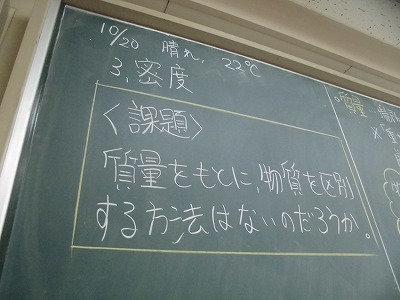 10/20 晴れ, 22℃
3. 密度
〈課題〉
質量をもとに、物質を区別
する方法はないのだろうか。
質量